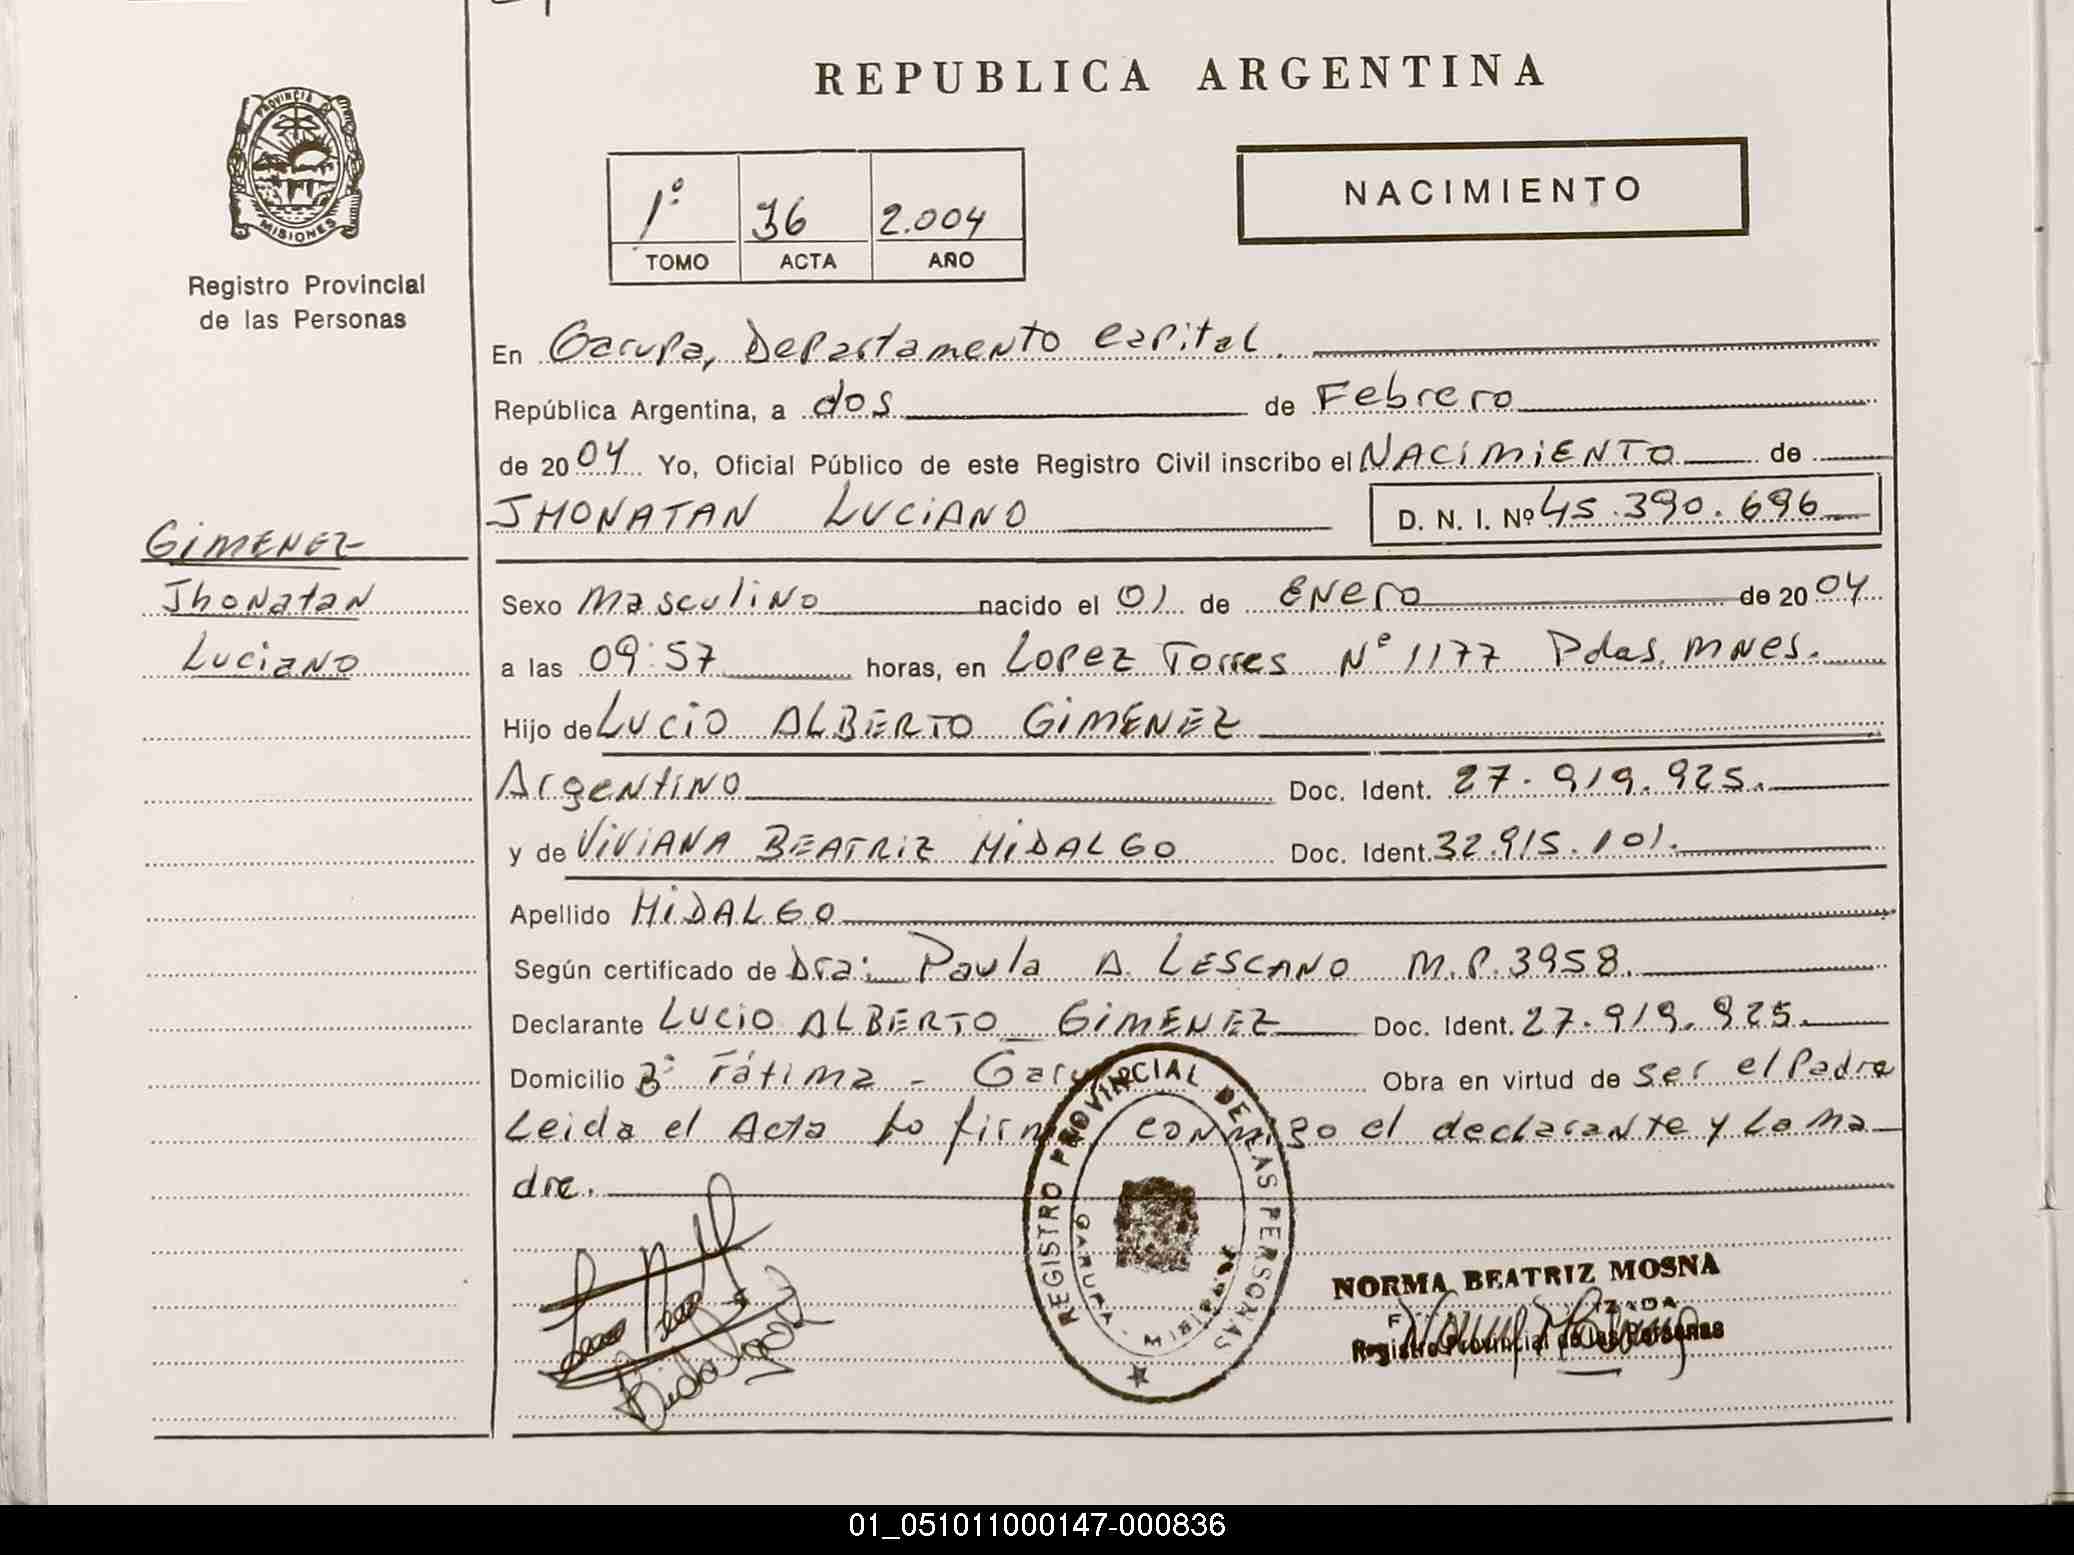 REPUBLICA ARGENTINA
PROVINCIA DE
MISIONES
Registro Provincial
de las Personas
1º 36 2.004
TOMO ACTA AÑO
NACIMIENTO
En Garupa, Departamento Capital.
República Argentina, a dos de Febrero
de 2004 Yo, Oficial Público de este Registro Civil inscribo el NACIMIENTO de
JHONATAN LUCIANO D. N. I. Nº 45.390.696
GIMENEZ
Jhonatan
Luciano
Sexo Masculino nacido el 01 de Enero de 2004
a las 09:57 horas, en Lopez Torres Nº 1177 Pdas. Mnes.
Hijo de LUCIO ALBERTO GIMENEZ
Argentino Doc. Ident. 27.919.925.
y de VIVIANA BEATRIZ HIDALGO Doc. Ident. 32.915.101.
Apellido HIDALGO
Según certificado de Dra: Paula A. LESCANO M.P. 3958.
Declarante LUCIO ALBERTO GIMENEZ Doc. Ident. 27.919.925.
Domicilio Bº Fátima - Obra en virtud de ser el Padre
Leida el Acta conmigo el declarante y la ma
dre.
REGISTRO PROVINCIAL DE LAS PERSONAS
GARUPA
NORMA BEATRIZ MOSNA
Registro Provincial de las Personas
01_051011000147-000836